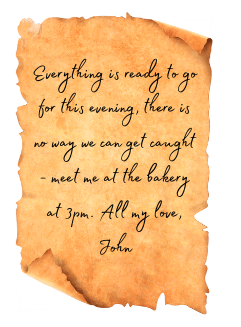 Everything is ready to go
for this evening, there is
no way we can get caught
- meet me at the bakery
at 3pm. All my love,
John